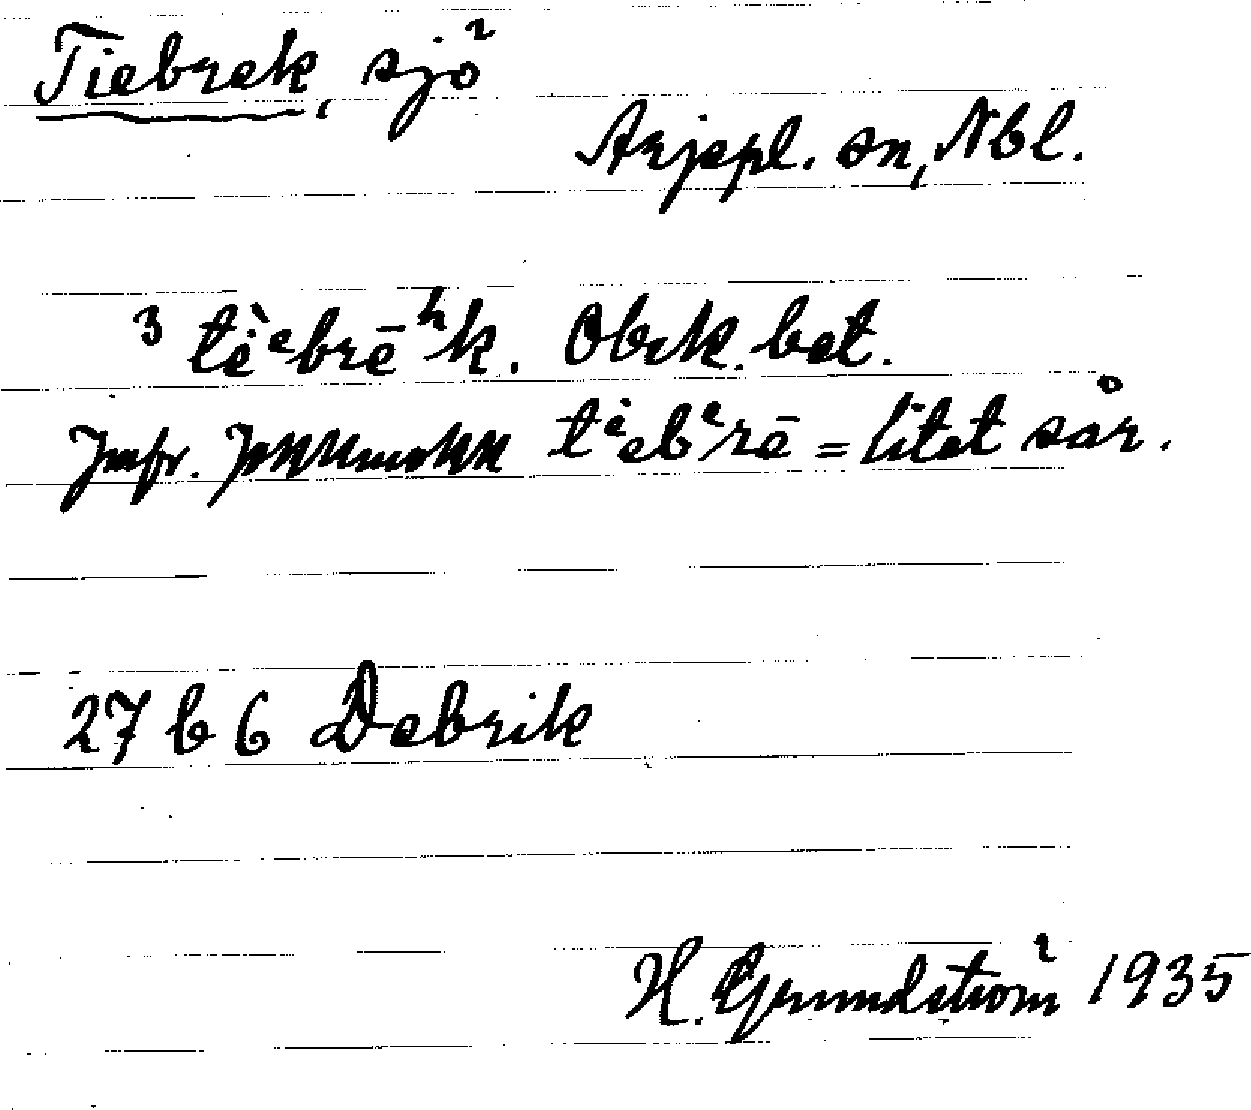 Tiebrek, sjö
Arjepl. sn, Nbl.
3 tìebrēʰk. Obek. bet.
Jmfr. Jokkmokk tiebᵉrē = litet sår.
27 b 6 Debrik
H. Grundström 1935